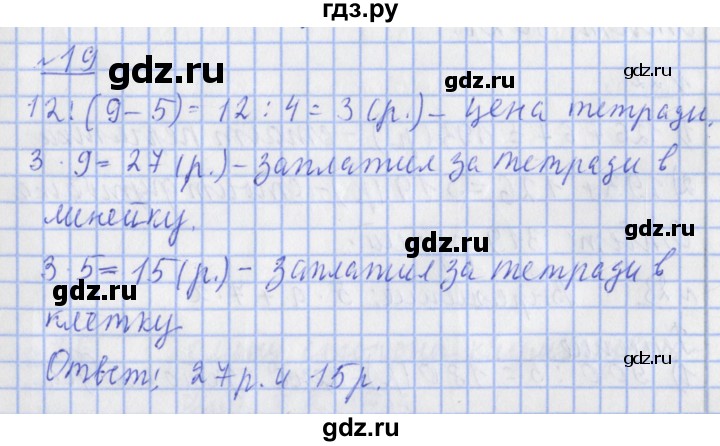 гдз.ру
№19
gdz.ru gdz.ru
12:(9-5)=12:4=3(р.)- цена тетради.
3·9=27(р.)-заплатил за тетради в
линейку.
gdz.ru
3·5=15(р.)- заплатил за тетради в
gdz.ru
клетку
Ответ: 27р. и 15р.
gdz.ru gdz.ru